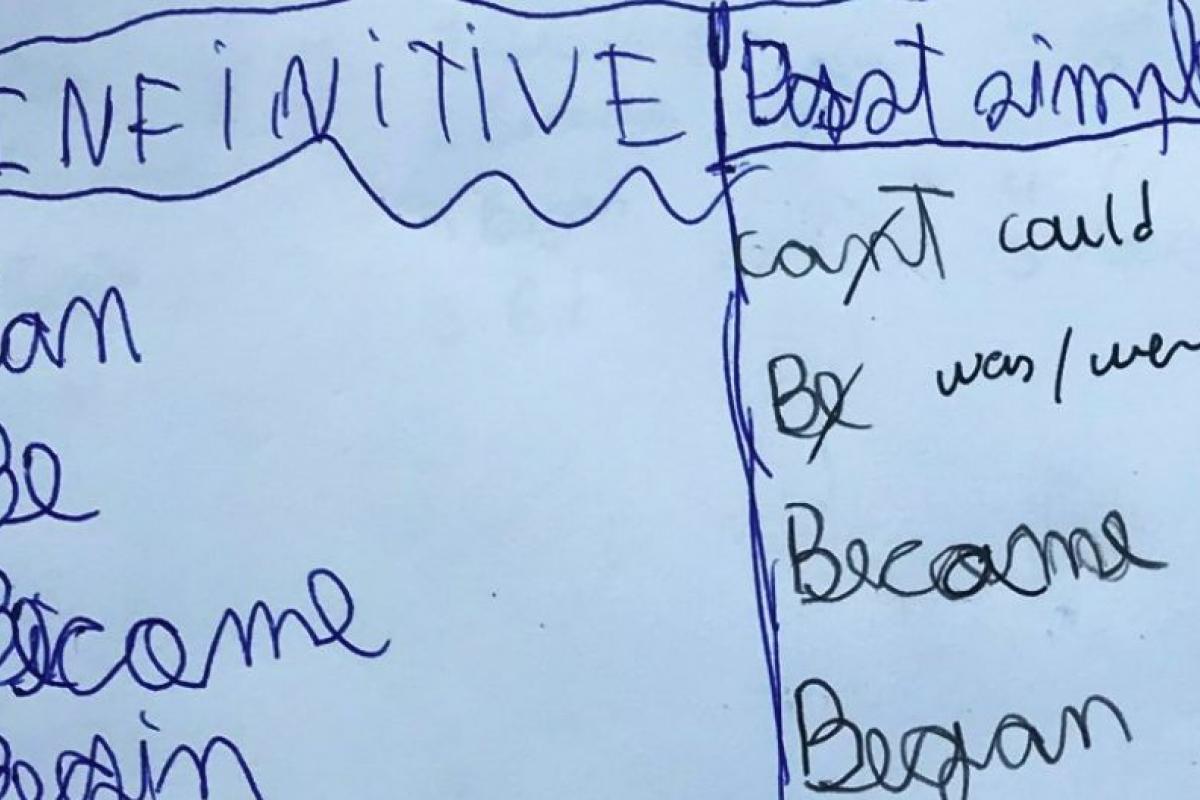 ENFINITIVE Past simpl
can't could
an
Be was/wer
Be
Became
Become
Began
Begin